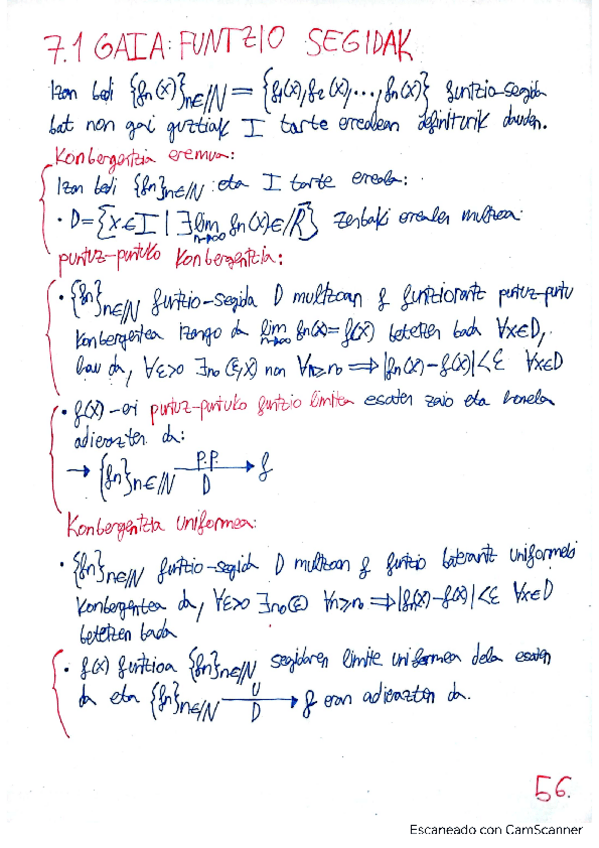 7.1 GAIA: FUNTZIO SEGIDAK
Izan bedi {fn(x)}n∈ℕ = {f1(x), f2(x), ..., fn(x)} funtzio-segida
bat non gai guztiak I tarte errealean definiturik dauden.
Konbergentzia eremua:
Izan bedi {fn}n∈ℕ eta I tarte erreala:
· D = {x∈I | ∃ lim n→∞ fn(x) ∈ ℝ} zenbaki errealen multzoa.
puntuz-puntuko konbergentzia:
· {fn}n∈ℕ funtzio-segida D multzoan f funtziorantz puntuz-puntu
konbergentea izango da lim n→∞ fn(x) = f(x) betetzen bada ∀x∈D,
hau da, ∀ε>0 ∃n0(ε,x) non ∀n≥n0 ⟹ |fn(x)-f(x)|<ε ∀x∈D
· f(x)-ari puntuz-puntuko funtzio limitea esaten zaio eta honela
adierazten da:
→ {fn}n∈ℕ P.P. D → f
Konbergentzia uniformea:
· {fn}n∈ℕ funtzio-segida D multzoan f funtzio baterantz uniformeki
konbergentea da, ∀ε>0 ∃n0(ε) ∀n≥n0 ⟹ |fn(x)-f(x)|<ε ∀x∈D
betetzen bada
· f(x) funtzioa {fn}n∈ℕ segidaren limite uniformea dela esaten
da eta {fn}n∈ℕ U D → f eran adierazten da.
56.
Escaneado con CamScanner